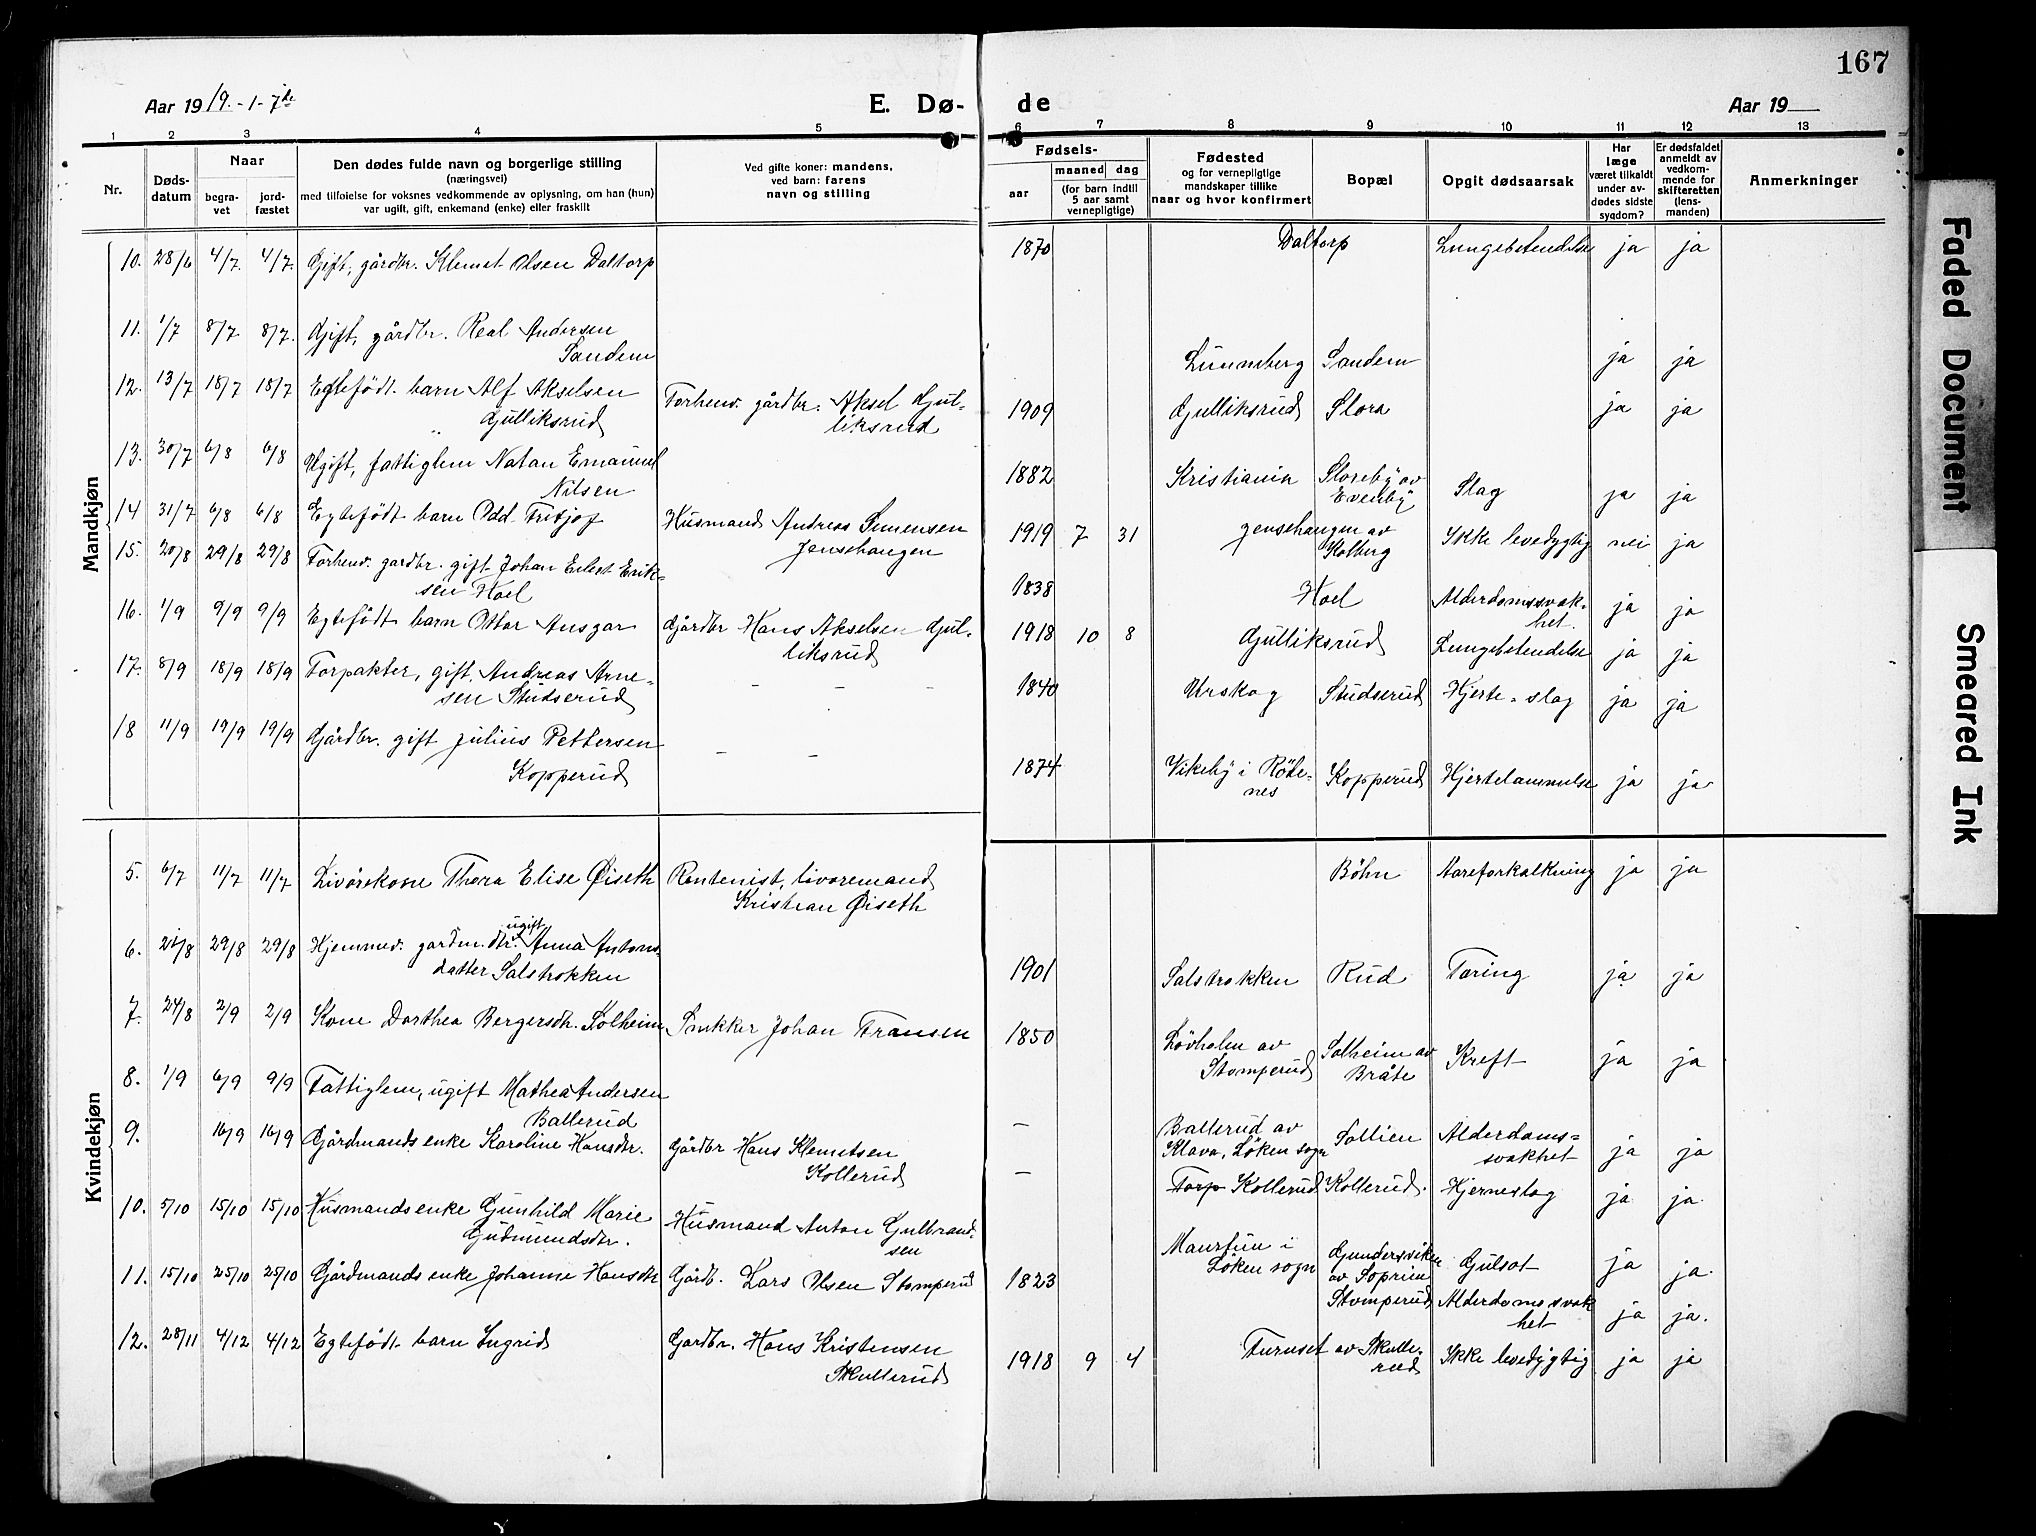 167
Aar 1919. - 1 - 7de
E. Dø-
de
Aar 19
1 2 3 4 5 6 7 8 9 10 11 12 13
Nr.
Døds-
datum
Naar
begra-
vet
jord-
fæstet
Den dødes fulde navn og borgerlige stilling
(næringsvei)
med tilføielse for voksnes vedkommende av oplysning, om han (hun)
var ugift, gift, enkemand (enke) eller fraskilt
Ved gifte koner: mandens,
ved barn: farens
navn og stilling
Fødsels-
aar
maaned dag
(for barn indtil
5 aar samt
vernepligtige)
Fødested
og for vernepligtige
mandskaper tillike
naar og hvor konfirmert
Bopæl
Opgit dødsaarsak
Har
læge
været tilkaldt
under av-
dødes sidste
sygdom?
Er dødsfaldet
anmeldt av
vedkom-
mende for
skifteretten
(lens-
manden)
Anmerkninger
Mandkjøn
10. 28/6 4/7. 4/7. Gift, gårdbr. Klemet Olsen Daltorp 1870 Daltorp Lungebetendelse ja ja
11. 1/7 8/7 8/7. Gift, gårdbr. Real Andersen
Sandem Lunneberg Sandem ja ja
12. 13/7 18/7 18/7 Egtefödt barn Alf Akselsen
Gulliksrud Forhenv. gårdbr. Aksel Gul-
liksrud 1909 Gulliksrud Slora ja ja
13. 30/7 6/8 6/8 Ugift, fattiglem Natan Emanuel
Nilsen 1882 Kristiania Sloreby av
Evenby Slag ja ja
14 31/7 6/8 6/8 Egtefödt barn Odd Fritjof Husmand Andreas Simensen
Jensehaugen 1919 7 31 Jensehaugen av
Kolberg Ikke levedygtig nei ja
15. 20/8 29/8 29/8 Forhenv. gardbr. gift Johan Edert Erik-
sen Hoel 1838 Hoel Alderdomssvak-
het. ja ja
16. 1/9 9/9 9/9 Egtefödt barn Ottar Ansgar Gårdbr Hans Akselsen Gul-
liksrud 1918 10 8 Gulliksrud Lungebetendelse ja ja
17. 8/9 18/9 18/9 Forpakter, gift, Andreas Arne-
sen Studserud - - - 1840 Urskog Studserud Hjerte-slag ja ja
18 11/9 19/9 19/9 Gårdbr. gift Julius Pettersen
Kopperud - - 1874 Vikeby i Röde-
nes Kopperud Hjertelammelse ja ja
Kvindekjøn
5. 6/7 11/7 11/7 Livörekone Thora Elise Øiseth Rentenist, livöremand
Kristian Øiseth Böhn Aareforkalkning ja ja
6. 21/8 29/8 29/8 Hjemmev. gardm. dtr. ugift Anna Antons-
datter Salstrokken 1901 Salstrokken Rud Tæring ja ja
7. 24/8 2/9 2/9 Kone Dorthea Bergersdt. Solheim Snekker Johan Fransen 1850 Lövholen av
Stomperud Solheim av
Bråte Kreft ja ja
8. 1/9 6/9 9/9 Fattiglem, ugift Mathea Andersen
Ballerud - Ballerud av
Klava, Løken sogn Sollien Alderdoms-
svakhet ja ja
9. 16/9 16/9 Gårdmands enke Karoline Hansdtr. Gårdbr Hans Klemetsen
Kollerud - Torp Kollerud Kollerud. Hjerneslag ja ja.
10. 5/10 15/10 15/10 Husmands enke Gunhild Marie
Gudmundsdtr. Husmand Anton Gulbrand-
sen Maurtun i
Löken sogn Gundersviken
av Soprim Gulsot ja ja.
11. 15/10 25/10 25/10 Gårdmands enke Johanne Hansdtr Gårdb. Lars Olsen Stomperud 1823 Stomperud Alderdomssvak
het ja ja.
12. 28/11 4/12 4/12 Egtefödt barn Ingrid Gardbr. Hans Kristensen
Skullerud 1918 9 4 Furuset av Skulle-
rud Ikke levedygtig ja ja
Faded Document
Smeared Ink